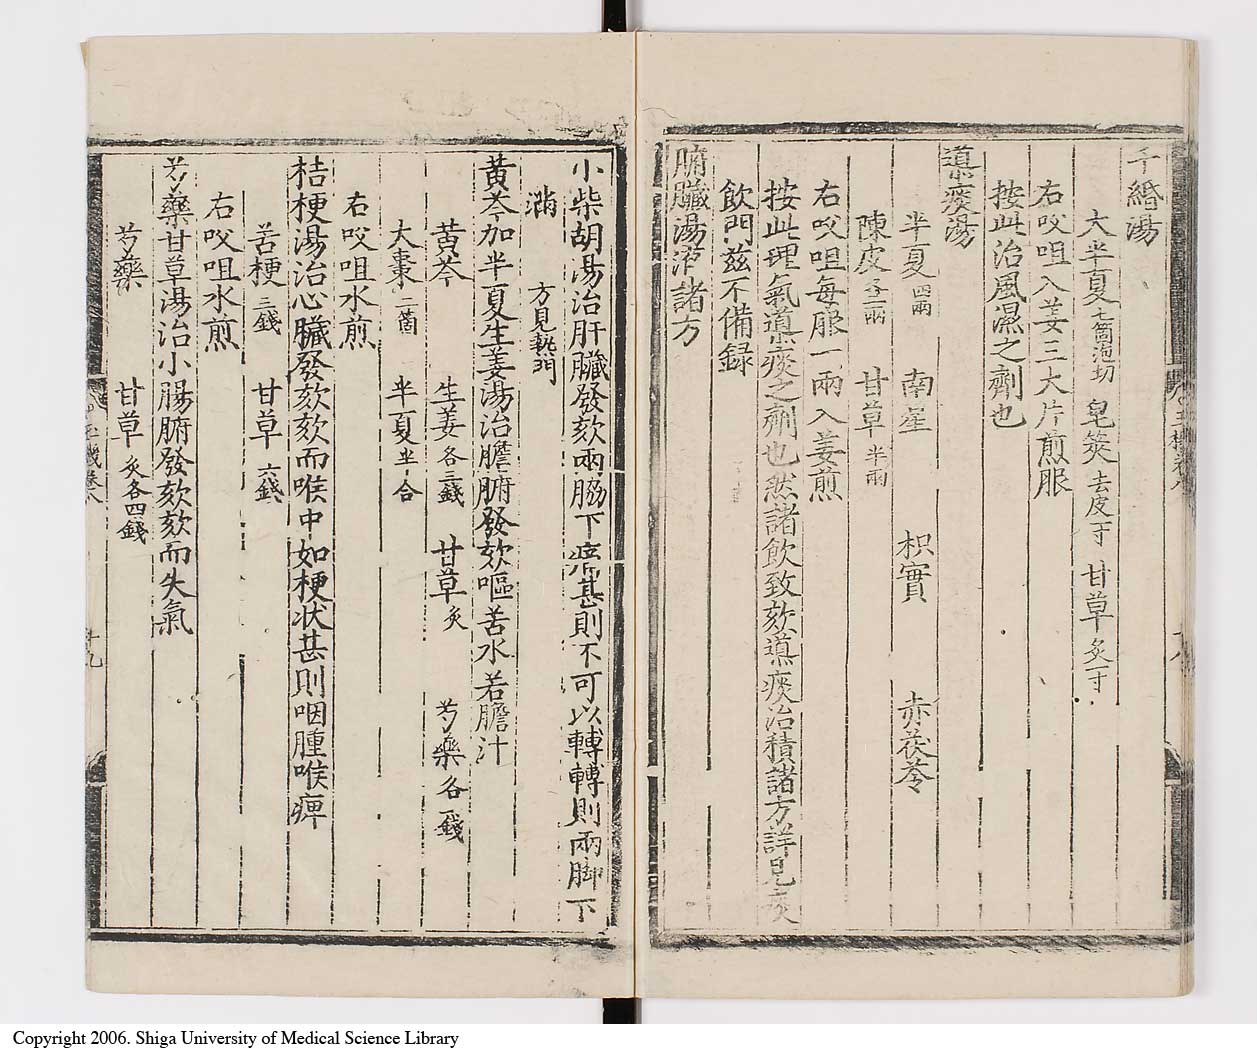 千緡湯
大半夏七箇泡切 皂筴去皮一寸 甘草炙一寸
右㕮咀入姜三大片煎服
按此治風濕之劑也
導痰湯
半夏四兩 南星 枳實 赤茯苓
陳皮各二兩 甘草半兩
右㕮咀每服一兩入姜煎
按此理氣導痰之劑也然諸飲致欬導痰治積諸方詳見痰
飲門茲不備録
腑臟湯液諸方
小柴胡湯治肝臟發欬兩脇下痞甚則不可以轉轉則兩脚下
滿 方見熱門
黃芩加半夏生姜湯治膽腑發欬嘔苦水若膽汁
黃芩 生姜各三錢 甘草炙 芍藥各一錢
大棗二箇 半夏半合
右㕮咀水煎
桔梗湯治心臟發欬欬而喉中如梗状甚則咽腫喉痺
苦梗三錢 甘草六錢
右㕮咀水煎
芍藥甘草湯治小腸腑發欬欬而失氣
芍藥 甘草炙各四錢
Copyright 2006. Shiga University of Medical Science Library